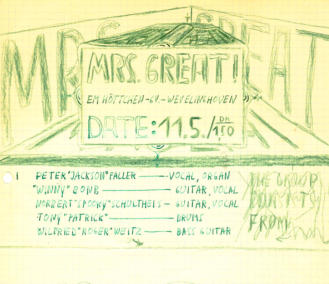 MRS. GREAT
MRS. GREAT!
EM HÖTTCHEN-GV.-WEVELINGHOVEN
DATE: 11.5./DM 1.50
PETER "JACKSON" FALLER — VOCAL, ORGAN
"WINNY" BONB — GUITAR, VOCAL
NORBERT "SPOOKY" SCHULTHEIS — GUITAR, VOCAL
TONY "PATRICK" — DRUMS
WILFRIED "ROGER" WEITZ — BASS GUITAR
THE GROUP
CONSISTS
FROM: